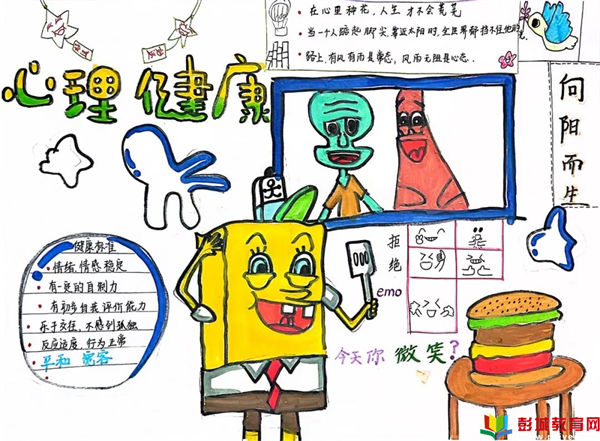 在心里种花，人生 才不会荒芜
当一个人踮起脚尖，靠近太阳时，全世界都挡不住他的光。
路上，有风有雨是常态，风雨无阻是心态。
心理健康
向阳而生
健康标准
情绪、情感稳定
有一定的自制力
有初步自我评价能力
乐于交往，不感到孤独
反应适度，行为正常
平和 宽容
拒绝
emo
今天你 微笑？
彭城教育网